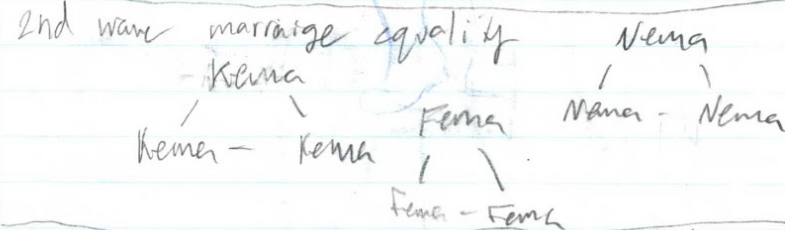 2nd wave marraige equality
Nema
Kema
Fema
Nema - Nema
Kema - Kema
Fema - Fema